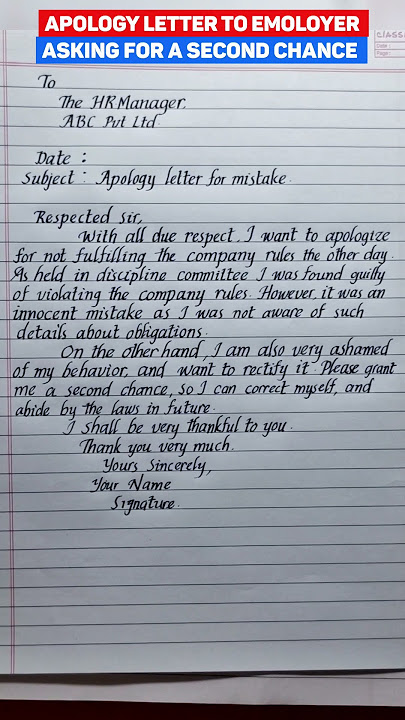 APOLOGY LETTER TO EMOLOYER
ASKING FOR A SECOND CHANCE
To
The HR Manager.
ABC Pvt Ltd
Date :
Subject : Apology letter for mistake.
Respected Sir,
With all due respect, I want to apologize
for not fulfilling the company rules the other day.
As held in discipline committee I was found guilty
of violating the company rules. However, it was an
innocent mistake as I was not aware of such
details about obligations.
On the other hand, I am also very ashamed
of my behavior, and want to rectify it. Please grant
me a second chance, so I can correct myself, and
abide by the laws in future.
I shall be very thankful to you.
Thank you very much.
Yours Sincerely,
Your Name
Signature.